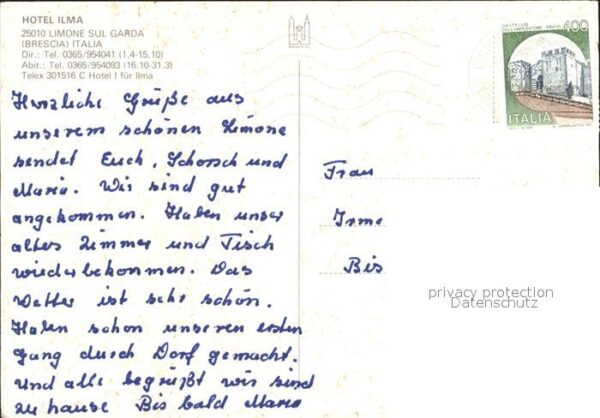 HOTEL ILMA
25010 LIMONE SUL GARDA
(BRESCIA) ITALIA
Dir.: Tel. 0365/954041 (1.4-15.10)
Abit.: Tel. 0365/954093 (16.10-31.3)
Telex 301516 C Hotel I für Ilma
Herzliche Grüße aus
unserem schönen Limone
sendet Euch, Schorsch und
Maria. Wir sind gut
angekommen. Haben unser
altes Zimmer und Tisch
wiederbekommen. Das
Wetter ist sehr schön.
Haben schon unseren ersten
Gang durch Dorf gemacht.
Und alle begrüßt wir sind
zu hause Bis bald Maria
CASTELLO
DELL'IMPERATORE · PRATO
400
ITALIA
Frau
Irma
Bis
privacy protection
Datenschutz